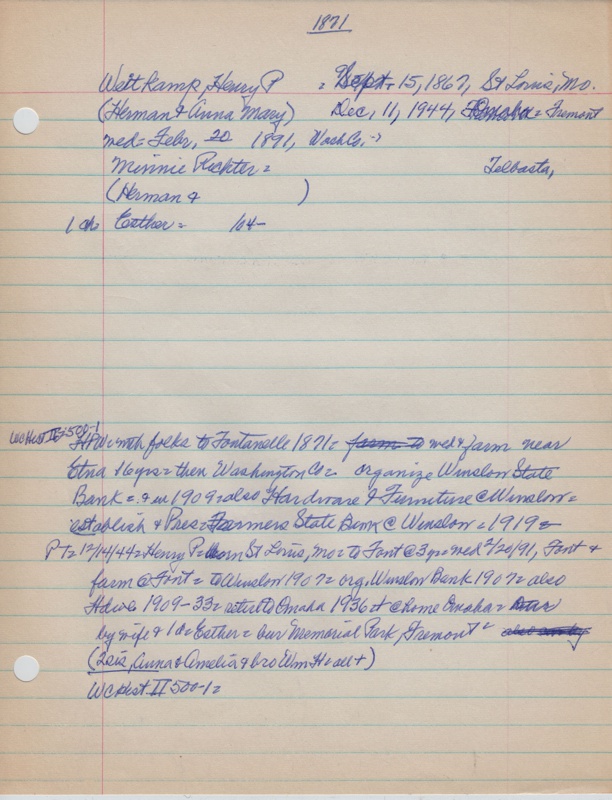 1871
Weitkamp, Henry P = Sept. 15, 1867, St Louis, Mo.
(Herman & Anna Mary) Dec, 11, 1944, Omaha = Fremont
med = Febr, 20 1891, Wash Co. →
Minnie Richter = Telbasta,
(Herman & )
1 ch = Esther = 104-
WC Hist II-500-1
HPW = with folks to Fontanelle 1871 = farm to med & farm near
Etna 16 yrs = then Washington Co = organize Winslow State
Bank = & in 1909 = also Hardware & Furniture @ Winslow =
establish & Pres = Farmers State Bank @ Winslow = 1919 =
PT = 12/14/44 = Henry P = born St Louis, Mo = to Font @ 3 yr = med 2/20/91, Font &
farm @ Font = to Winslow 1907 = org. Winslow Bank 1907 = also
Hdwe 1909-33 = retired to Omaha 1936 + @ home Omaha =
by wife & 1 d = Esther = bur Memorial Park, Fremont = also
(2 sis, Anna & Amelia & bro Wm H = all +)
WC Hist. II 500-1 =